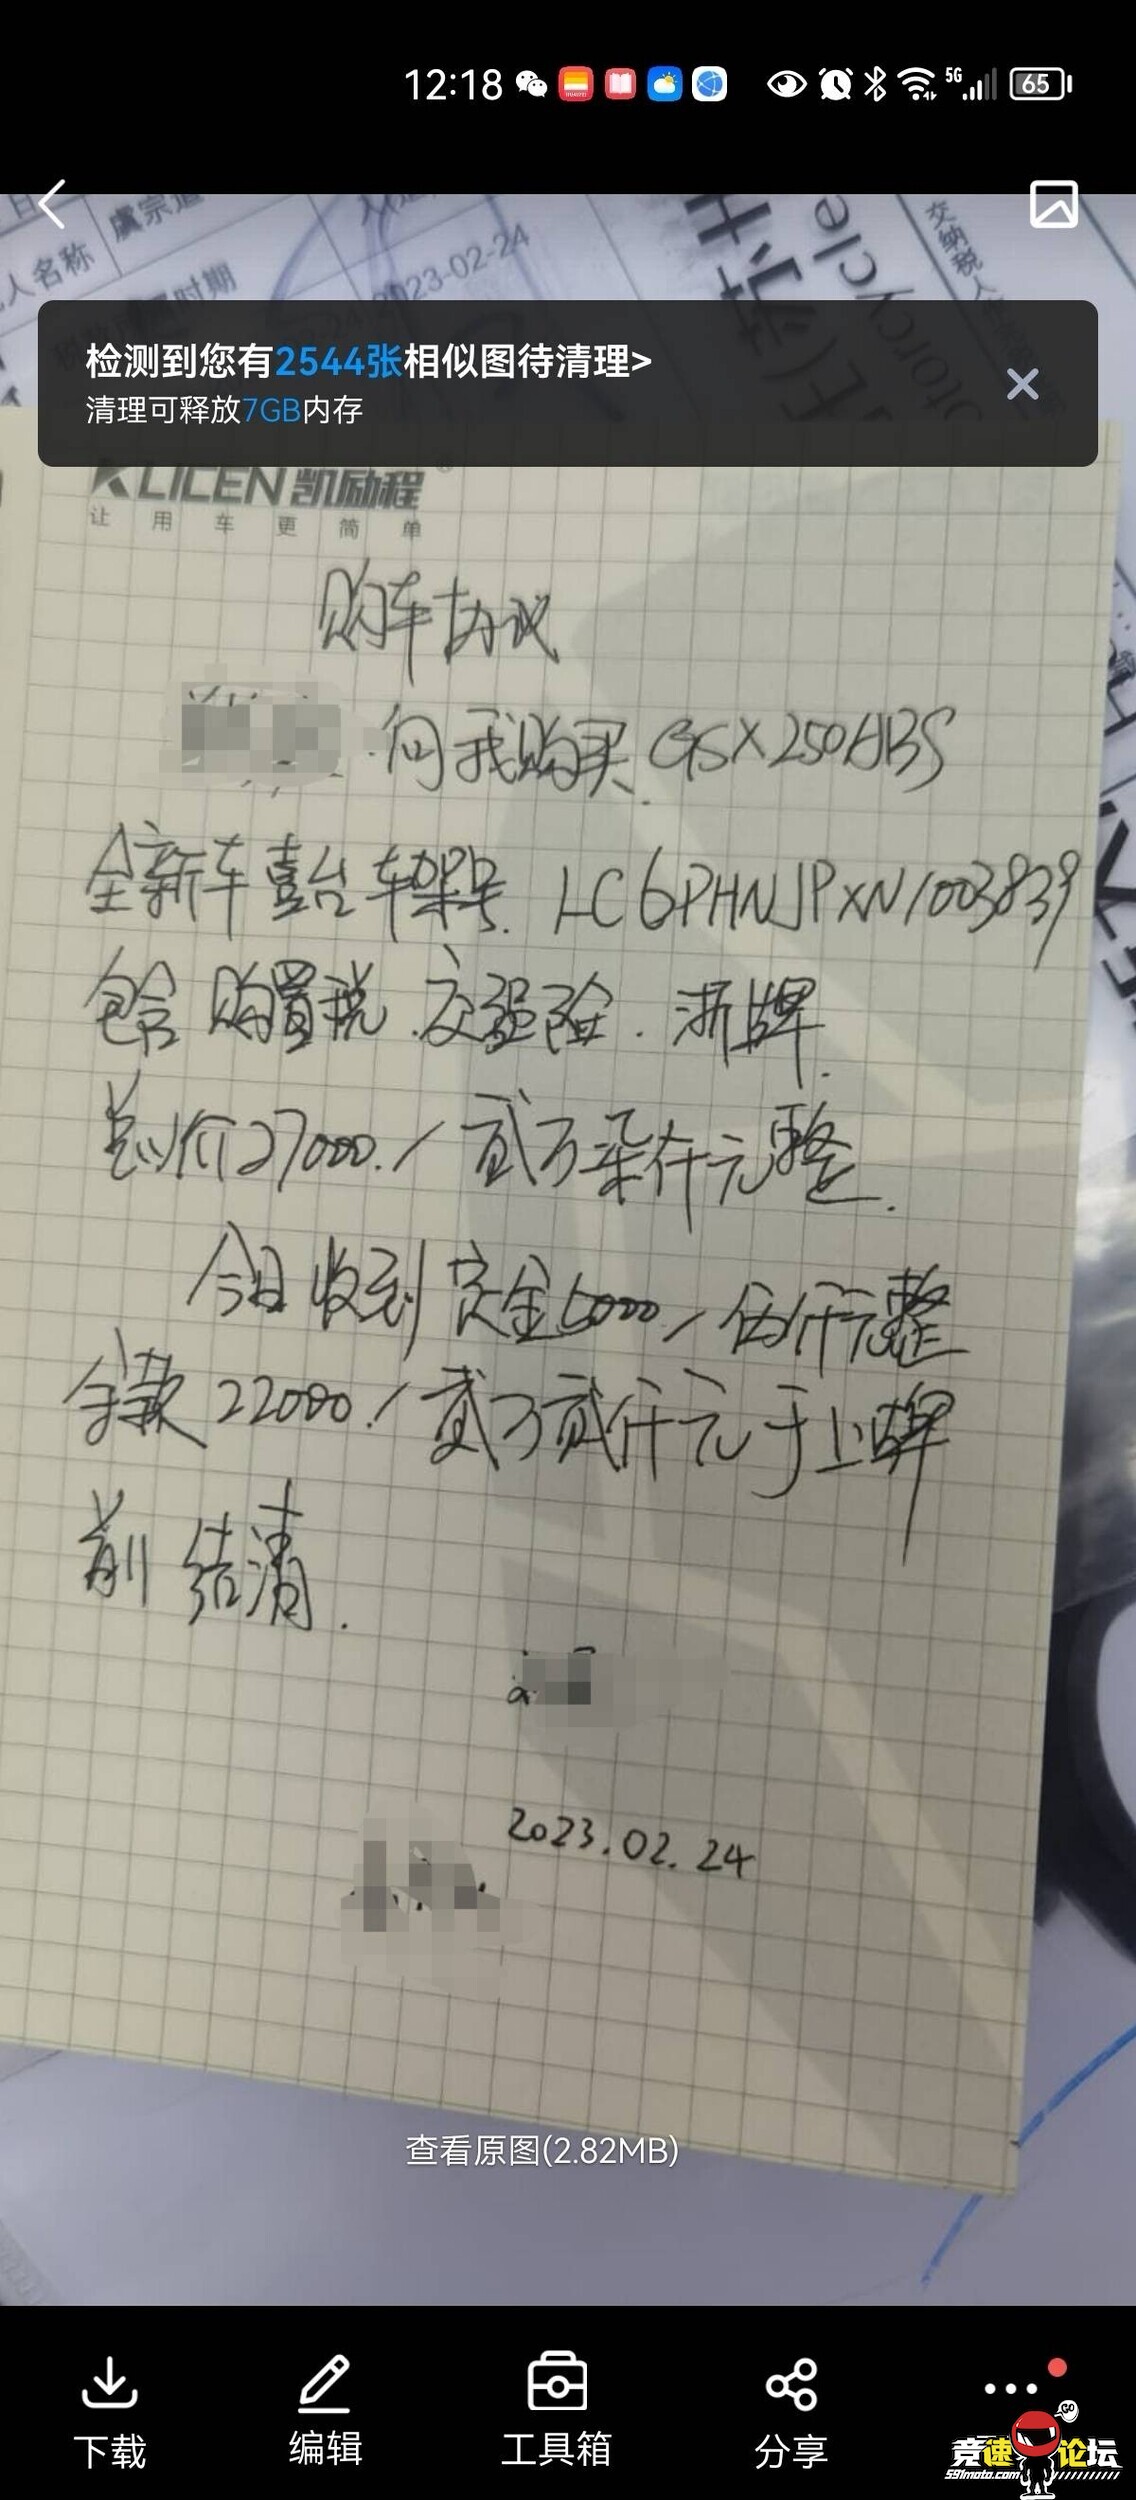 12:18
5G
65
人名称
虞宗道
时期
2023-02-24
交纳税人
检测到您有2544张相似图待清理>
清理可释放7GB内存
KLICEN 凯励程
让用车更简单
购车协议
向我购买 GSX250ABS
全新车壹台 车架号. LC6PHNJPXN1003839
包含 购置税.交强险.浙牌.
总价27000./贰万柒仟元整.
今日收到定金5000/伍仟元整
余款22000/贰万贰仟元于上牌
前结清.
2023.02.24
查看原图(2.82MB)
下载
编辑
工具箱
分享
GO
竞速论坛
591moto.com